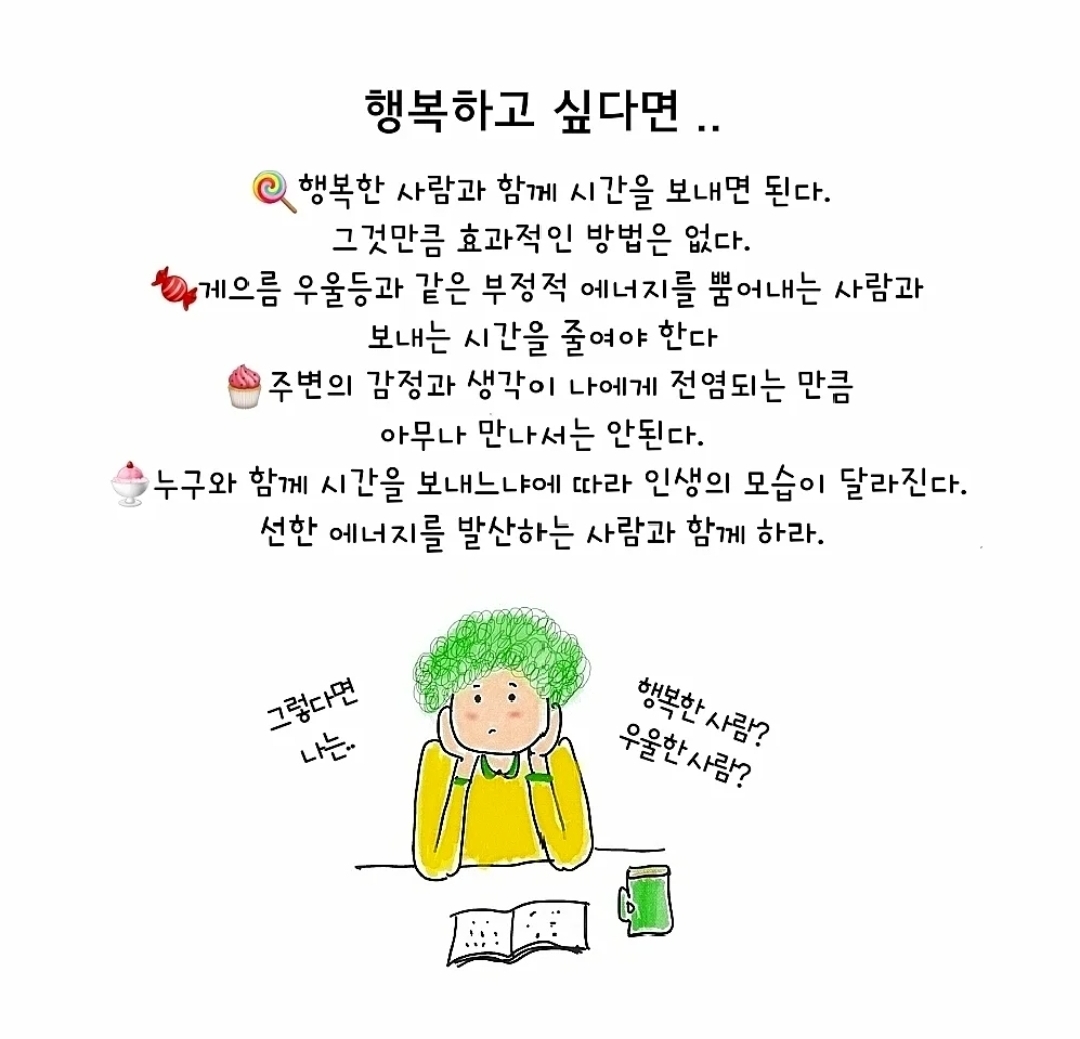 행복하고 싶다면 ..
🍭행복한 사람과 함께 시간을 보내면 된다.
그것만큼 효과적인 방법은 없다.
🍬게으름 우울등과 같은 부정적 에너지를 뿜어내는 사람과
보내는 시간을 줄여야 한다
🧁주변의 감정과 생각이 나에게 전염되는 만큼
아무나 만나서는 안된다.
🍨누구와 함께 시간을 보내느냐에 따라 인생의 모습이 달라진다.
선한 에너지를 발산하는 사람과 함께 하라.
그렇다면
나는..
행복한 사람?
우울한 사람?